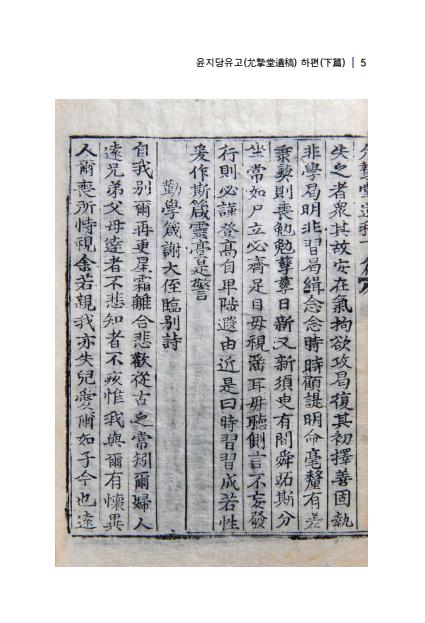 윤지당유고(尤摯堂遺稿) 하편(下篇) | 5
失之者衆其故安在氣拘欲攻曷復其初擇善固執
非學曷明非習曷緝念念時時顧諟明命毫釐有差
秉彛則喪勉勉孶孶日新又新須臾有間舜跖斯分
坐常如尸立必齊足目毋視滛耳毋聽側言不妄發
行則必謹登高自卑陟遐由近是曰時習習成若性
爰作斯箴靈臺是警
勸學箴謝大侄臨別詩
自我別爾再更星霜離合悲歡從古之常矧爾婦人
遠兄弟父母達者不悲知者不哀惟我與爾有懷異
人爾喪所恃視余若親我亦失兒愛爾如子今也遠